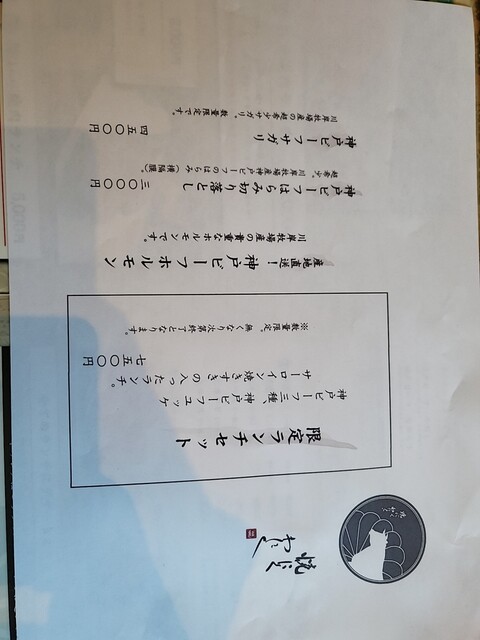 焼にく
限定ランチセット
神戸ビーフ三種、神戸ビーフユッケ
サーロイン焼きすきの入ったランチ。
七五〇〇円
※数量限定。無くなり次第終了となります。
産地直送！神戸ビーフホルモン
川岸牧場産の貴重なホルモンです。
神戸ビーフはらみ切り落とし 三〇〇〇円
超希少。川岸牧場産神戸ビーフのはらみ（横隔膜）。
神戸ビーフサガリ 四五〇〇円
川岸牧場産の超希少サガリ。数量限定です。